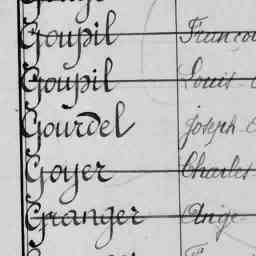 Goupil Francoi
Goupil Louis
Gourdel Joseph
Goyer Charles
Granger Ange